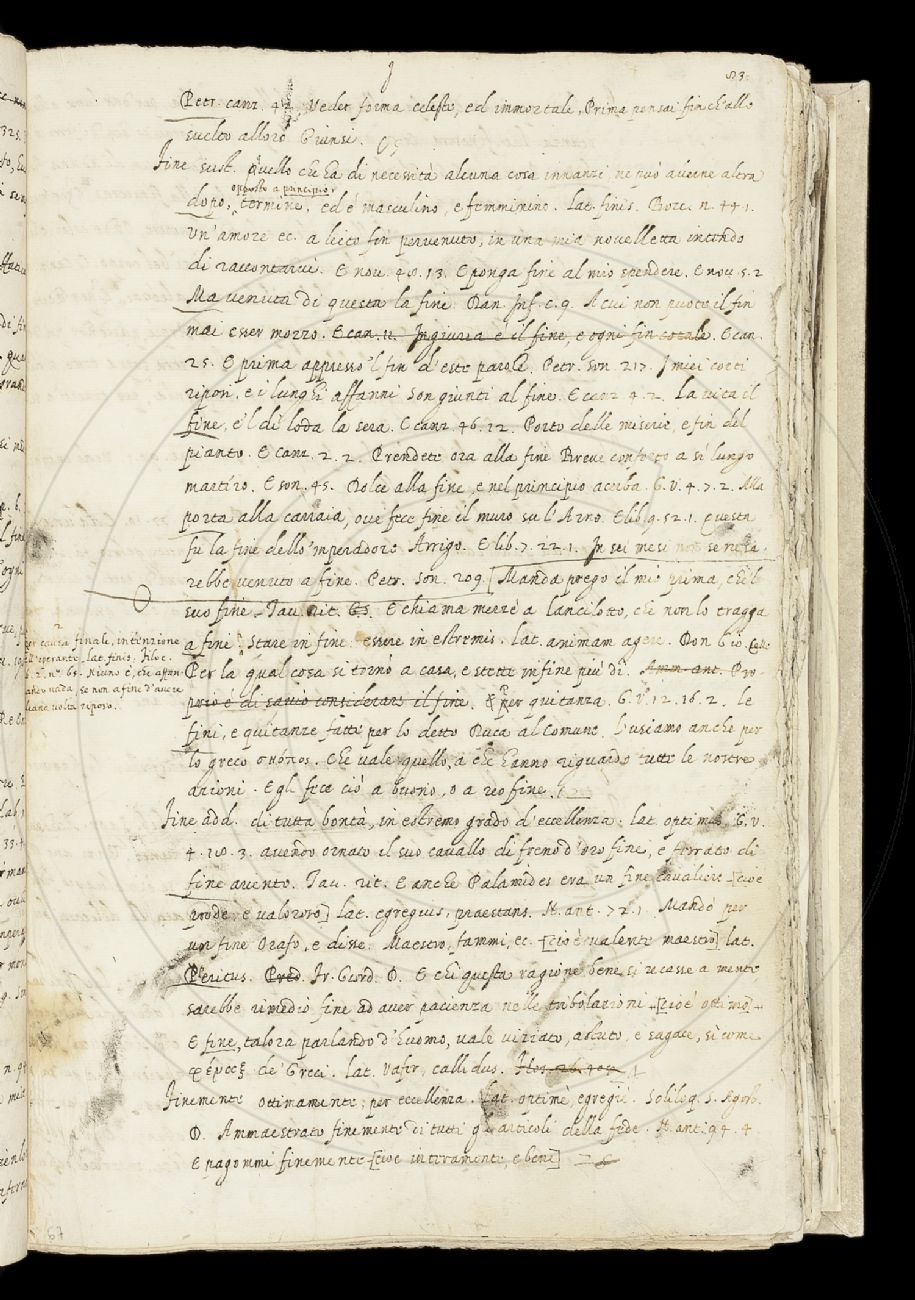 83.
Petr. canz. 42. Veder forma celeste, ed immortale, Prima pensai finch'allo
suelto alloro Giunsi.
Fine sust. Quello che ha di necessità alcuna cosa innanzi, ne può averne altra
opposto a principio
dopo, termine, ed è masculino, e femminino. Lat. finis. Bocc. n. 44. 1.
Un'amore ec. a lieto fin pervenuto, in una mia novelletta intendo
di raccontarvi. E nov. 48. 13. E ponga fine al mio spendere. E nov. 5. 2
Ma venuta di questa la fine. Dan. Inf. c. 9. A cui non puote il fin
mai esser mozzo. E can. 11. Ingiuria è il fine, e ogni fin cotale. E can.
25. E prima appresso 'l fin d'este parole. Petr. son. 217. I miei corti
riposi, e i lunghi affanni Son giunti al fine. E canz. 4. 2. La vita il
fine, e'l dì loda la sera. E canz. 46. 12. Porto delle miserie, e fin del
pianto. E canz. 2. 2. Prendete ora alla fine Breve conforto a sì lungo
martiro. E son. 45. Dolce alla fine, e nel principio acerba. G. V. 4. 7. 2. Alla
porta alla carraia, ove fece fine il muro su l'Arno. E lib. 9. 52. 1. Questa
fu la fine dello 'mperadore Arrigo. E lib. 7. 22. 1. In sei mesi non se
rebbe venuto a fine. Petr. son. 209. [Manda prego il mio prima, che'l
suo fine. Tav. rit. E chiama mercè a Lancilotto, che non lo tragga
a fine. Stare in fine. essere in estremis. lat. animam agere. Don
Per la qual cosa si tornò a casa, e stette in fine più dì. Amm. ant. Pro-
prio è di savio considerare il fine. per quitanza. G. V. 12. 16. 2. le
fini, e quitanze fatte per lo detto Duca al Comune. L'usiamo anche per
lo greco σκόπος. Che vale quello, a che hanno riguardo tutte le nostre
azioni. Egli fece ciò a buono, o a reo fine.
2
per causa finale, intenzione
dell'operante, lat. finis, Filoc.
l. 2. n. 65. Niuno è, che affan-
ando vada, se non a fine d'avere
una volta riposo.
Fine add. di tutta bontà, in estremo grado d'eccellenza. lat. optimus. G. V.
4. 18. 3. avendo ornato il suo cavallo di freno d'oro fine, e ferrato di
fine ariento. Tav. rit. E anche Palamides era un fine cavaliere [cioè
prode, e valoroso] Lat. egregius, praestans. N. ant. 72. 1. Mandò per
un fine Orafo, e disse. Maestro, fammi, ec. [cioè valente maestro] lat.
Peritus. Pred. Fr. Giord. D. E chi questa ragione bene si recasse a mente
sarebbe rimedio fine ad aver pacienza nelle tribolazioni [cioè ottimo]
E fine, talora parlando d'huomo, vale viziato, astuto, e sagace, sì come
de' Greci. lat. vafer, callidus.
Finemente ottimamente, per eccellenza. Lat. optimè, egregiè. Soliloq. S. Agost.
D. Ammaestrato finemente di tutti gli articoli della fede. N. ant. 94. 4
E pagommi finemente [cioè interamente, e bene]
67